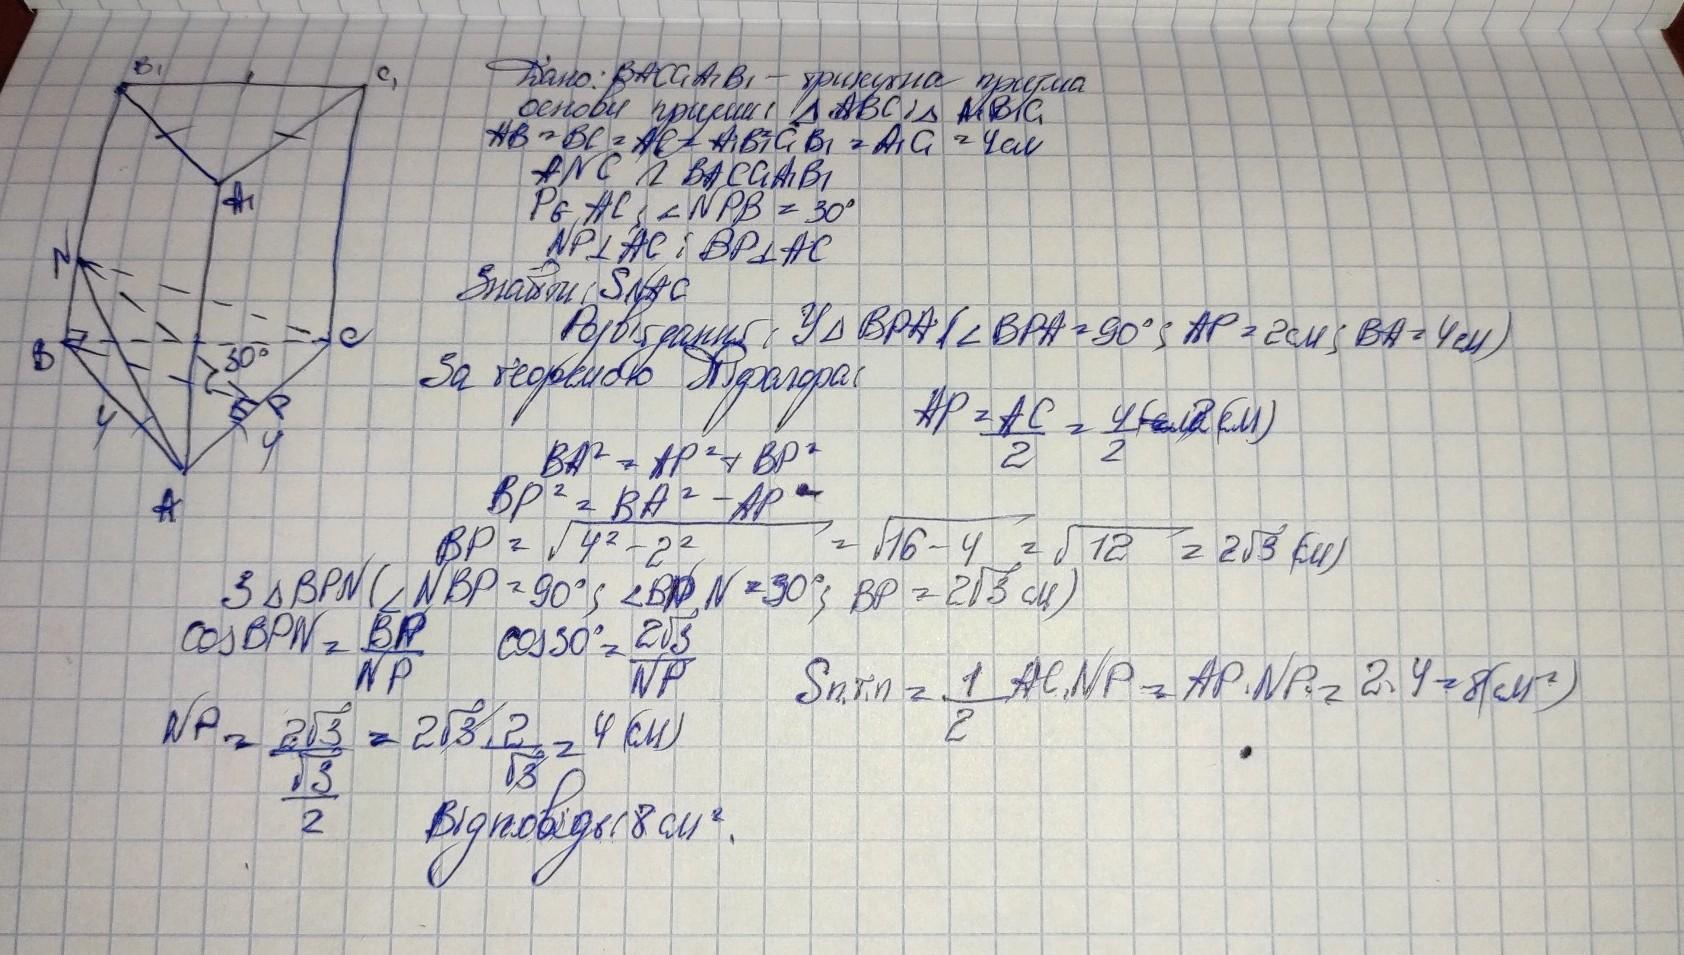 B₁ C₁
A₁
N
B C
30°
P
4 4
A
Дано: BACC₁A₁B₁ – трикутна призма
основи призми: △ABC; △A₁B₁C₁
AB = BC = AC = A₁B₁ = C₁B₁ = A₁C₁ = 4 см
ANC ∩ BACC₁A₁B₁
P ∈ AC; ∠NPB = 30°
NP⊥AC; BP⊥AC
Знайти: SNAC
Розв'язання: У △BPA (∠BPA = 90°; AP = 2 см; BA = 4 см)
За теоремою Піфагора:
AP = AC/2 = 4/2 = 2 (см)
BA² = AP² + BP²
BP² = BA² - AP²
BP = √4² - 2² = √16 - 4 = √12 = 2√3 (см)
З △BPN (∠NBP = 90°; ∠BPN = 30°; BP = 2√3 см)
cosBPN = BP/NP cos30° = 2√3/NP
Sп.т.п = 1/2 AC·NP = AP·NP = 2·4 = 8 (см²)
NP = 2√3/(√3/2) = 2√3·2/√3 = 4 (см)
Відповідь: 8 см².